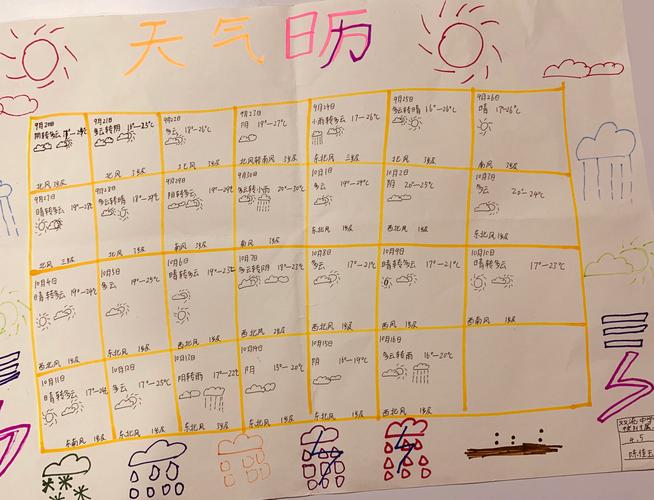 天气日历
9月20日
阴转多云
北风 3级
9月21日
多云转阴 18°-25°C
北风 3级
多云 18°-26°C
北风 3级
阴 19°-27°C
北风转南风 3级
9月24日
小雨转多云 17-26°C
东北风 三级
9月25日
多云转晴 16°-26°C
北风 3级
9月26日
晴 17-26°C
南风 3级
9月27日
晴转多云
北风 三级
9月28日
多云转晴
北风 3级
9月29日
阴转多云
南风 3级
9月30日
多云转小雨 20°-30°C
南风 3级
10月1日
多云 19°-29°C
东北风 1级
10月2日
阴 20°-25°C
西北风 1级
10月3日
多云 20°-24°C
东北风 1级
10月4日
晴转多云
西北风 1级
10月5日
多云 19°-25°C
东北风 1级
10月6日
晴转多云 19°-23°C
西北风 1级
10月7日
多云转阴 18°-23°C
西北风 1级
10月8日
多云 17°-21°C
西北风 1级
10月9日
晴转多云 17°-21°C
西风 1级
10月10日
晴转多云 17°-23°C
西南风 1级
10月11日
晴转多云
东南风 1级
10月12日
多云 17°-25°C
东北风 1级
阴转雨 17°-22°C
东北风
10月14日
阴 15°-20°C
东北风 1级
10月15日
阴 15°-19°C
东北风 1级
多云转雨 16°-20°C
西北风 1级
4.5